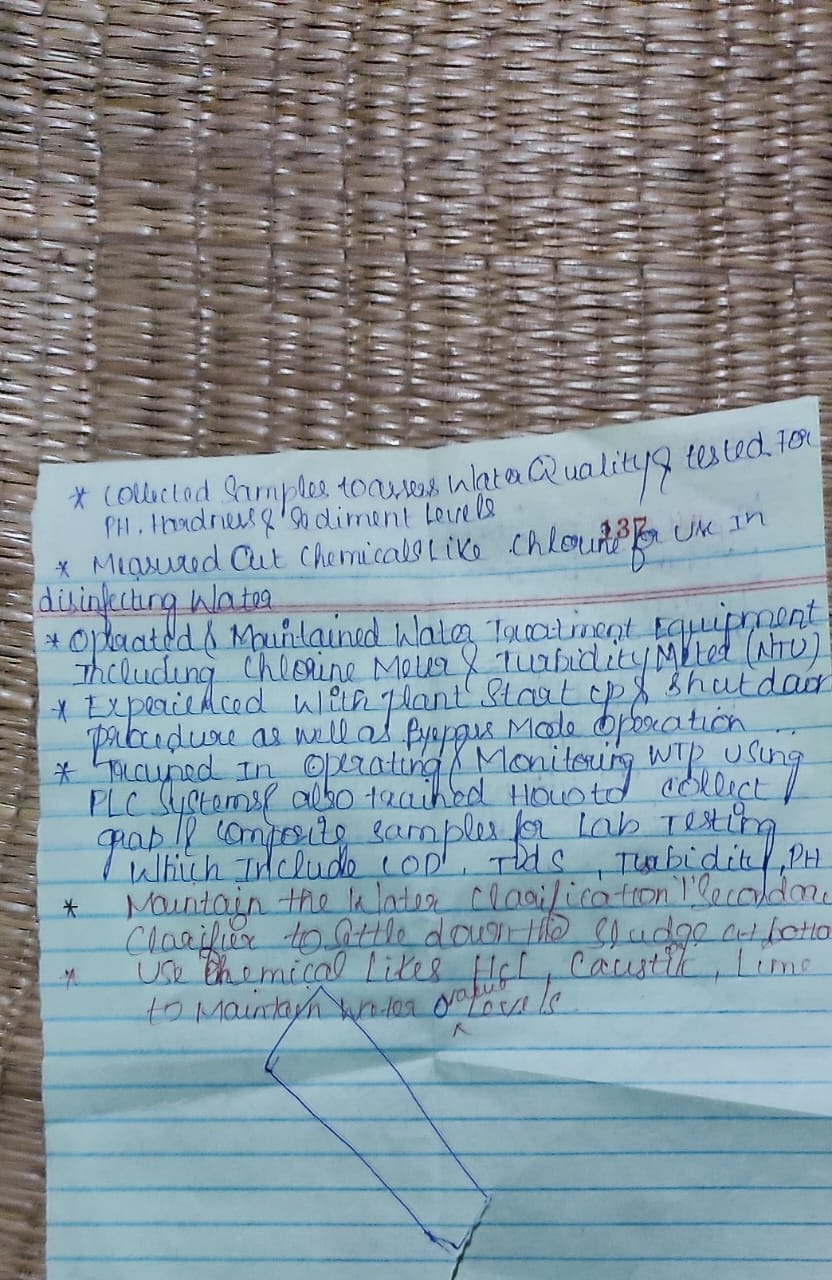 * Collected Samples to assess Water Quality & tested For
PH, Hardness & Sediment Levels
137
* Measured Out Chemicals Like Chlorine For Use In
disinfecting Water
* Operated & Maintained Water Treatment Equipment
Including Chlorine Meter & Turbidity Meted (NTU)
* Experienced With Plant Start up & Shut daon
Procedure as well as Byepass Mode Operation
* Trained In Operating & Monitering WTP Using
PLC Systems & also trained How to collect
grab & composite samples for Lab Testing
Which Include COD, TDS, Turbidity, PH
* Maintain the Water Clarification Secondar
Clarifier to Settle down the Sludge at botto
* Use Chemical Likes HCL, Caustic, Lime
value
to Maintain Water Levels